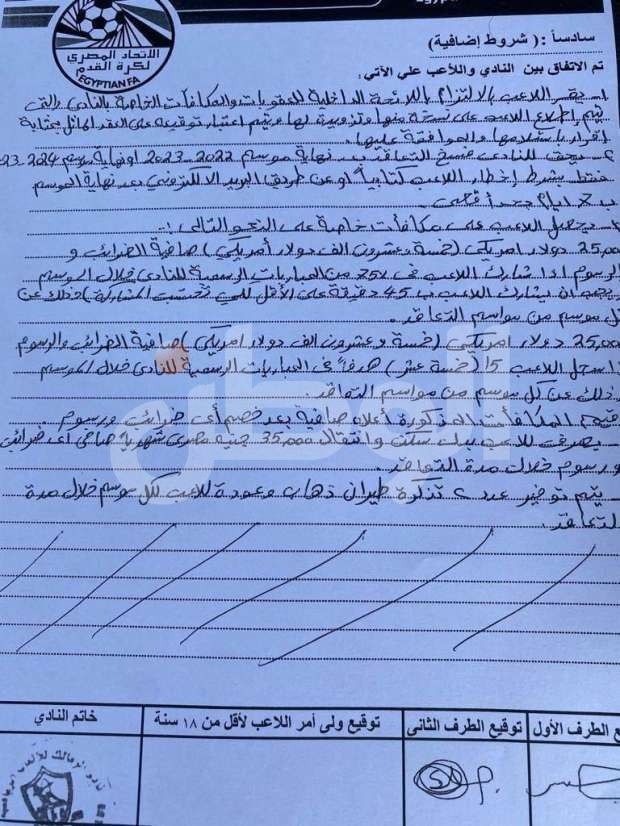 الاتحاد المصرى
لكرة القدم
EGYPTIAN FA
سادساً : ( شروط إضافية)
تم الاتفاق بين النادي واللاعب علي الآتي :
١- يقر اللاعب بالالتزام باللائحة الداخلية للعقوبات والمكافآت الخاصة بالنادى والتى
يتم إطلاع اللاعب على نسخة منها وتزويده لها ويتم اعتبار توقيعه على العقد الماثل بمثابة
إقرار باستلامها والموافقة عليها.
٢- يحق للنادى فسخ التعاقد بعد نهاية موسم 2022-2023 او نهاية موسم 2024-23
فقط بشرط إخطار اللاعب كتابياً او عن طريق البريد الالكترونى بعد نهاية الموسم
ب ايام بحد أقصى.
يحصل اللاعب على مكافآت خاصة على النحو التالى :-
25,00 دولار امريكى (خمسة وعشرون الف دولار أمريكى) صافية الضرائب و
الرسوم اذا شارك اللاعب فى 75% من المباريات الرسمية للنادى خلال الموسم
يجب ان يشارك اللاعب ب 45 دقيقة على الأقل لكى تحتسب المشاركة) وذلك عن
كل موسم من مواسم التعاقد.
25,000 دولار امريكى (خمسة وعشرون الف دولار امريكى) صافية الضرائب والرسوم
اذا سجل اللاعب 15 (خمسة عشر) هدفاً فى المباريات الرسمية للنادى خلال الموسم
وذلك عن كل موسم من مواسم التعاقد.
المكافآت المذكورة أعلاه صافية بعد خصم أى ضرائب ورسوم.
يصرف للاعب بدل سكن وانتقال 35,000 جنيه مصرى شهرية صافى اى ضرائب
ورسوم خلال مدة التعاقد.
يتم توفير عدد ٢ تذكرة طيران ذهاب وعودة للاعب لكل موسم خلال مدة
التعاقد.
الوطن
ع الطرف الأول
توقيع الطرف الثانى
توقيع ولى أمر اللاعب لأقل من ١٨ سنة
خاتم النادي